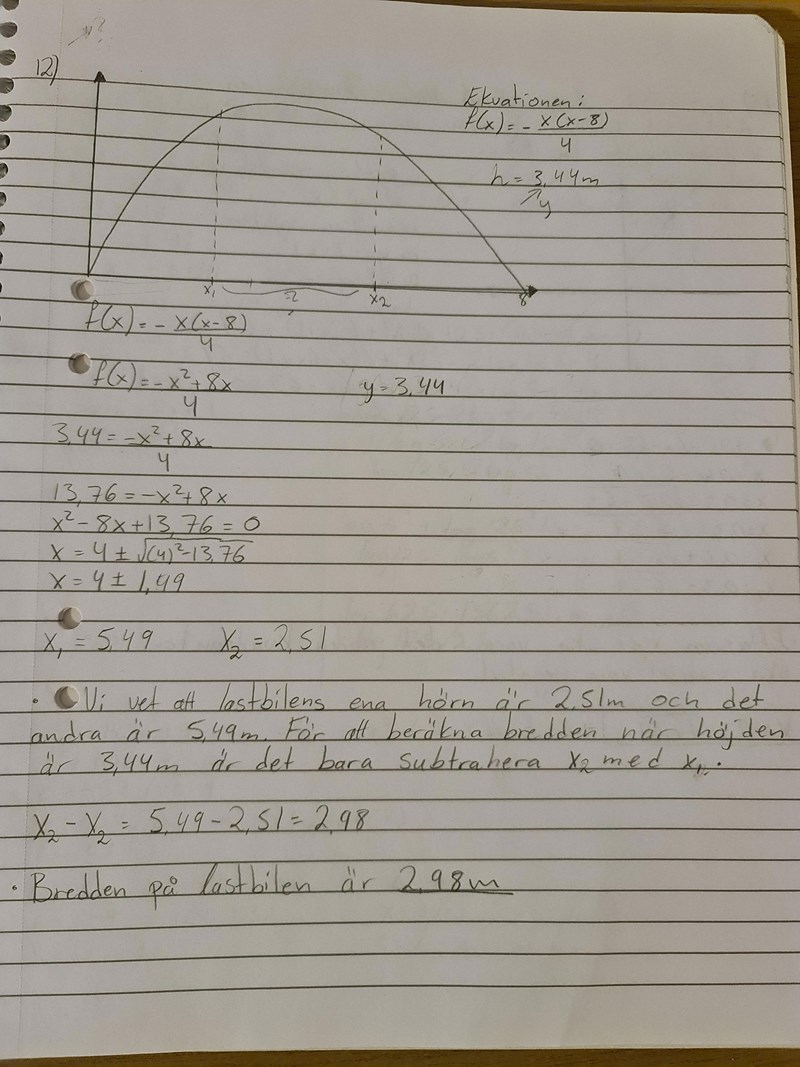 12)
Ekvationen:
f(x) = - x(x-8)
4
h = 3,44m
y
x₁ ? x₂ 8
f(x) = - x(x-8)
4
f(x) = -x² + 8x
4
y = 3,44
3,44 = -x² + 8x
4
13,76 = -x² + 8x
x² - 8x + 13,76 = 0
x = 4 ± √(4)² - 13,76
x = 4 ± 1,49
x₁ = 5,49 x₂ = 2,51
• Vi vet att lastbilens ena hörn är 2,51m och det
andra är 5,49m. För att beräkna bredden när höjden
är 3,44m är det bara subtrahera x₂ med x₁.
x₂ - x₂ = 5,49 - 2,51 = 2,98
• Bredden på lastbilen är 2,98m